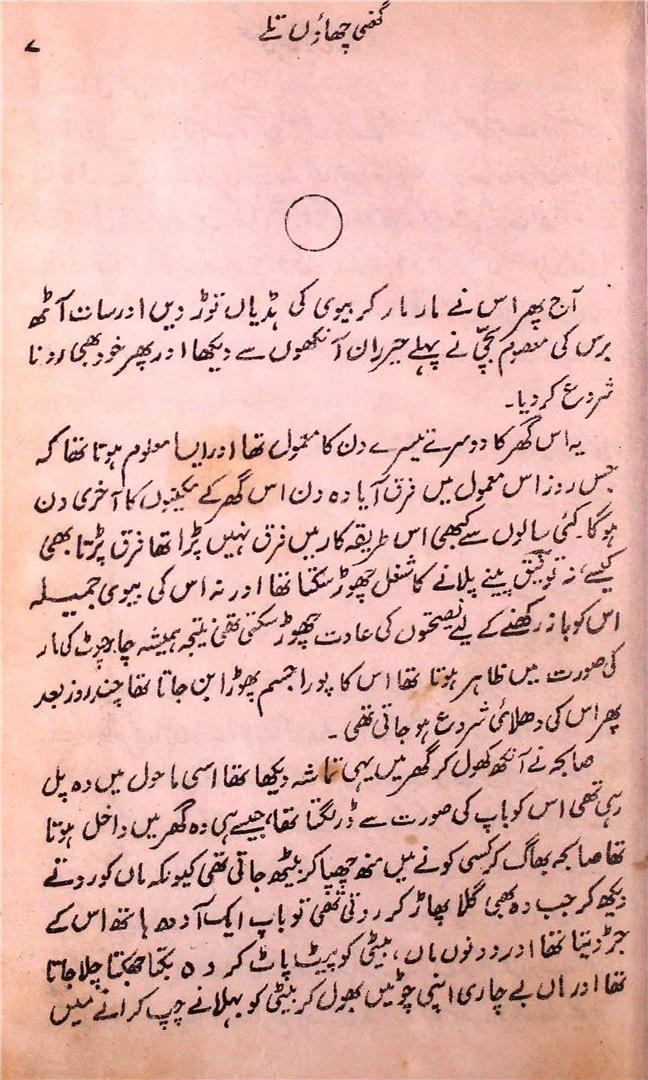 گھنی چھاؤں تلے
۷
آج پھر اس نے مار مار کر بیوی کی ہڈیاں توڑ دیں اور سات آٹھ
برس کی معصوم بچی نے پہلے حیران آنکھوں سے دیکھا اور پھر خود بھی رونا
شروع کر دیا۔
یہ اس گھر کا دوسرے تیسرے دن کا معمول تھا اور ایسا معلوم ہوتا تھا کہ
جس روز اس معمول میں فرق آیا وہ دن اس گھر کے مکینوں کا آخری دن
ہوگا۔ کئی سالوں سے کبھی اس طریقہ کار میں فرق نہیں پڑا تھا فرق پڑتا بھی
کیسے، نہ توفیق پینے پلانے کا شغل چھوڑ سکتا تھا اور نہ اس کی بیوی جمیلہ
اس کو باز رکھنے کے لیے نصیحتوں کی عادت چھوڑ سکتی تھی نتیجہ ہمیشہ چار چوٹ کی مار
کی صورت میں ظاہر ہوتا تھا اس کا پورا جسم پھوڑا بن جاتا تھا چند روز بعد
پھر اس کی دھلائی شروع ہو جاتی تھی۔
صابحہ نے آنکھ کھول کر گھر میں یہی تماشہ دیکھا تھا اسی ماحول میں وہ پل
رہی تھی اس کو باپ کی صورت سے ڈر لگتا تھا، جیسے ہی وہ گھر میں داخل ہوتا
تھا صابحہ بھاگ کر کسی کونے میں منھ چھپا کر بیٹھ جاتی تھی کیونکہ ماں کو روتے
دیکھ کر جب وہ بھی گلا پھاڑ کر روتی تھی تو باپ ایک آدھ ہاتھ اس کے
جڑ دیتا تھا اور دونوں ماں، بیٹی کو پیٹ پاٹ کر وہ بکتا جھکتا چلا جاتا
تھا اور ماں بے چاری اپنی چوٹیں بھول کر بیٹی کو بہلانے چپ کرانے میں